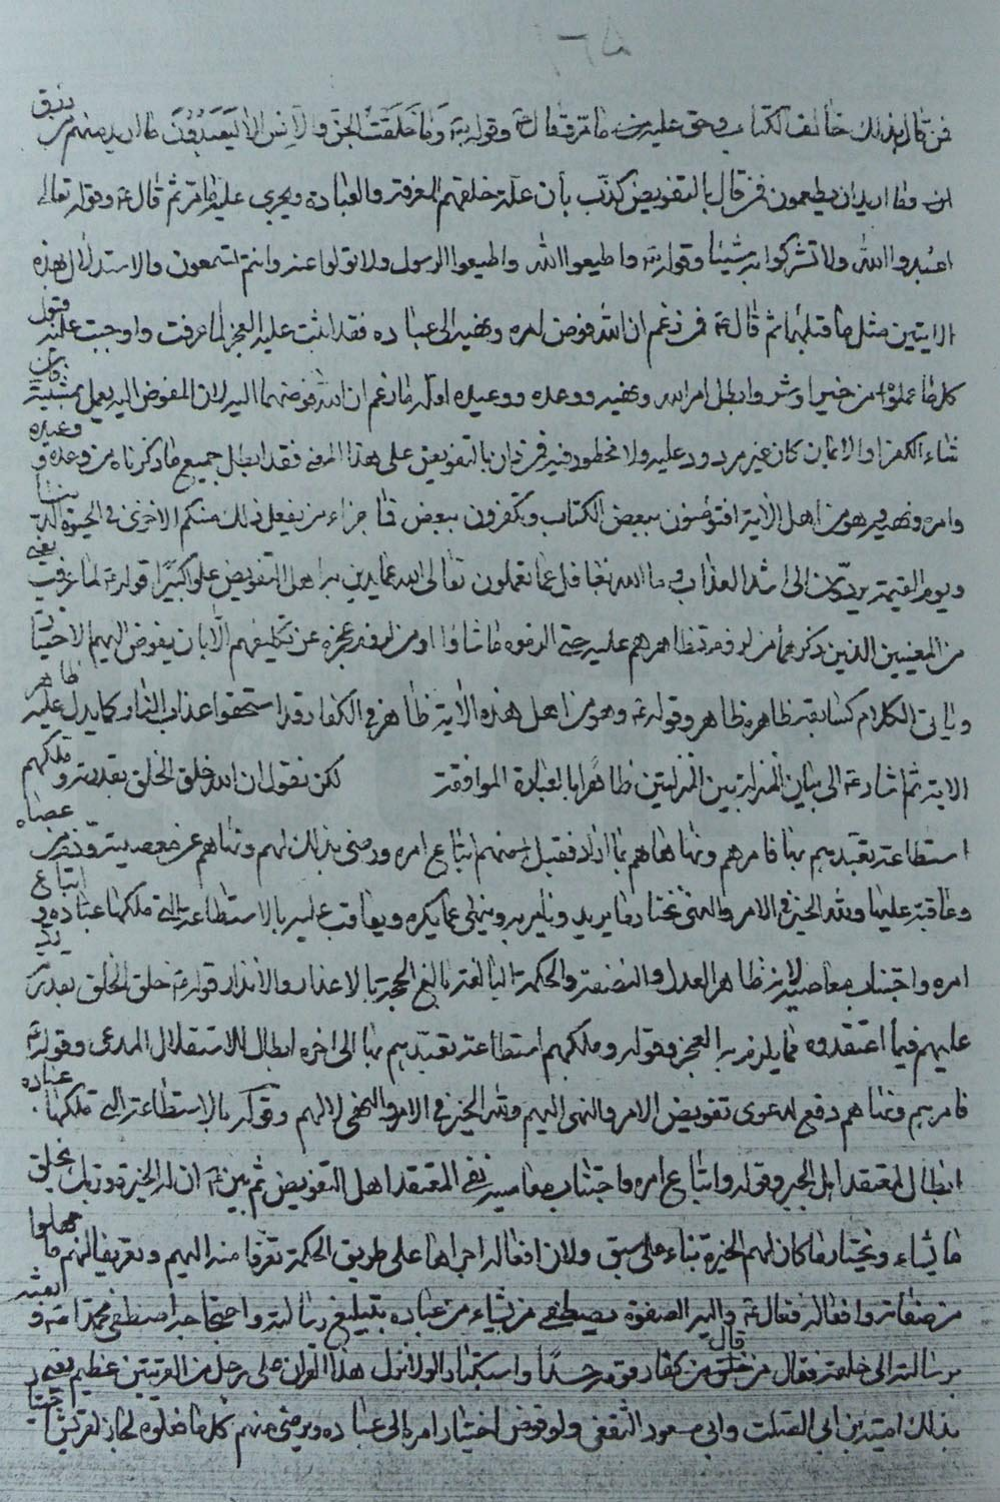 فمن قال بذلك خالف الكتاب وحق عليه ما ترقال ع وقوله تع وما خلقت الجن والانس الا ليعبدون ما اريد منهم من رزق
وما اريد ان يطعمون فمن قال بالتفويض كذب بأن علة خلقهم المعرفة والعبادة ويجري عليه ما مر ثم قال ع وقوله تعالى
اعبدوا الله ولا تشركوا به شيئا وقوله تع واطيعوا الله واطيعوا الرسول ولا تولوا عنه وانتم تسمعون والاستدلال بهذه
الايتين مثل ما قبلهما ثم قال ع فمن زعم ان الله فوض امره ونهيه الى عباده فقد اثبت عليه العجز لما عرفت واوجب عليه قبول
كل ما عملوا من خير او شر وابطل امر الله ونهيه ووعده ووعيده لعلة ما زعم ان الله فوضهما اليه لان المفوض اليه يعمل بمشيته فان
شاء الكفر او الايمان كان غير مردود عليه ولا محظور فمن دان بالتفويض على هذا المعنى فقد ابطل جميع ما ذكرناه من وعده ووعيده
وامره ونهيه وهو من اهل الاية افتؤمنون ببعض الكتاب وتكفرون ببعض فما جزاء من يفعل ذلك منكم الا خزى في الحيوة الدنيا
ويوم القيمة يردون الى اشد العذاب وما الله بغافل عما تعملون تعالى الله عما يدين به اهل التفويض علوا كبيرا قوله ع لما عرفت يعني
من المعنيين الذين ذكرهما من لزومه تظاهرهم عليه حتى الزموه ما شاؤا او من لزومه عجزه عن تكليفهم الا بان يفوض اليهم الاختيار
وباقي الكلام كسابقه ظاهره ظاهر وقوله ع وهو من اهل هذه الاية ظاهره في الكفار وقد استحقوا عذاب النار كما يدل عليه ظاهر
الاية ثم اشار ع الى بيان المنزلة بين المنزلتين ظاهرا بالعبارة الموافقة لكن نقول ان الله خلق الخلق بقدرته وملكهم
استطاعة تعبدهم بها فامرهم ونهاهم بما اراد فقبل منهم اتباع امره ورضى بذلك لهم ونهاهم عن معصيته وذم من عصاه
وعاقبه عليها ولله الخيرة في الامر والنهى يختار ما يريد ويامر به وينهى عما يكره ويعاقب عليه بالاستطاعة التي ملكها عباده لاتباع
امره واجتناب معاصيه لانه ظاهر العدل والنصفة والحكمة البالغة بالغ الحجة بالاعذار والانذار قوله ع خلق الخلق بقدرته رد
عليهم فيما اعتقدوه مما يلزم به العجز وقوله وملكهم استطاعة تعبدهم بها الى اخره ابطال للاستقلال المدعى وقوله ع
فامرهم ونهاهم دفع لدعوى تفويض الامر والنهى اليهم ولله الخيرة في الامر والنهى لا لهم وقوله بالاستطاعة التي ملكها عباده
ابطال لمعتقد اهل الجبر وقوله واتباع امره واجتناب معاصيه نفي لمعتقد اهل التفويض ثم بين ع ان له الخيرة وربك يخلق
ما يشاء ويختار ما كان لهم الخيرة بناء على سبق ولان افعاله اجراها على طريق الحكمة تعرفا منه اليهم وتعريفا لهم ما جهلوا
من صفاته وافعاله فقال ع واليه الصفوة يصطفى من يشاء من عباده بتبليغ رسالته واحتجاجه اصطفى محمدا ص وابعثه
برسالته الى خلقه فقال من قال من كفار قومه حسدا واستكبارا لولا نزل هذا القران على رجل من القريتين عظيم يعني
بذلك امية بن ابي الصلت وابى مسعود الثقفى ولو فوض اختيار امره الى عباده ورضى منهم كل ما فعلوه لجاز لقريش اختيار